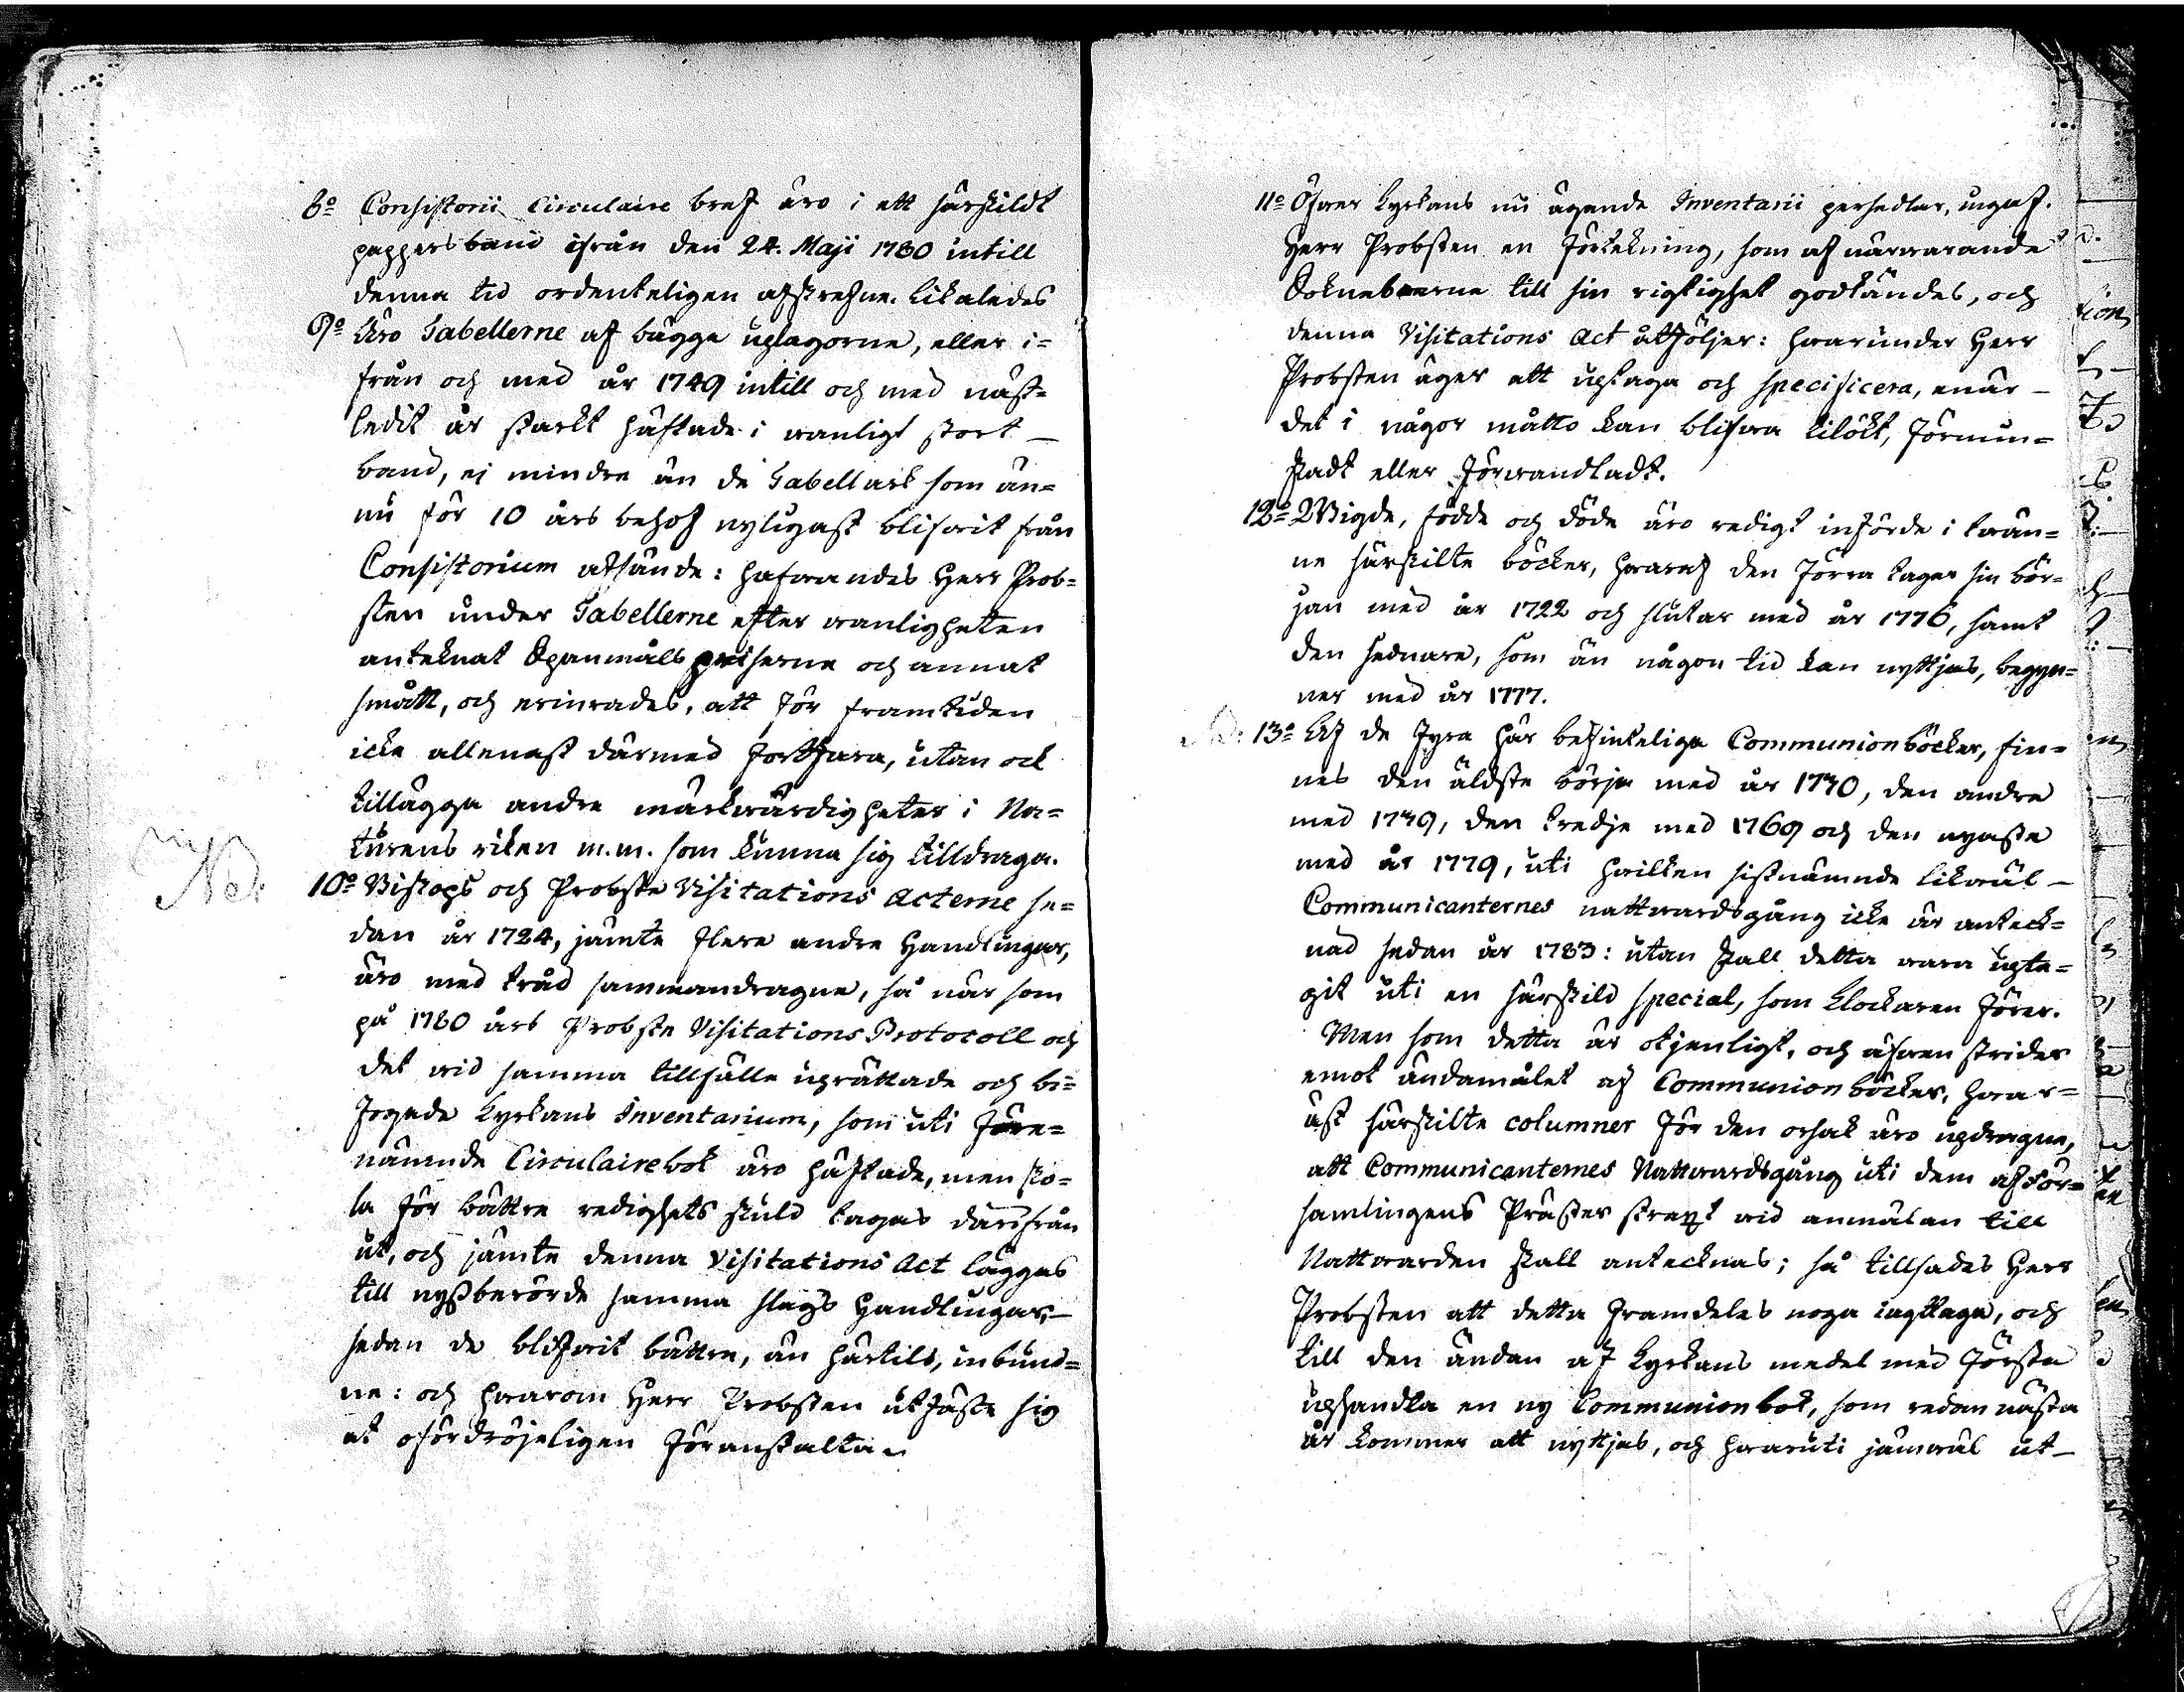 8º Consistorii Circulaire bref äro i ett särskildt
pappersband ifrån den 24. Maji 1780 intill
denna tid ordenteligen afskrefne. Likaledes
9º Äro Tabellerne af bägge uplagorne, eller i=
från och med år 1749 intill och med näst=
ledit år starkt häftade i wanligt stort –
band, ej mindre än de Tabellark som än=
nu för 10 års behof nyligast blifwit från
Consistorium afsände: hafwandes Herr Prob=
sten under Tabellerne efter wanligheten
anteknat Spanmåls priserne och annat
smått, och erinrades, att för framtiden
icke allenast därmed fortfara, utan ock
tillägga andre märkwärdigheter i Na=
turens riken m.m. som kunna sig tilldraga.
Nb: 10º Biskops och Probste Visitations Acterne se=
dan år 1724, jämte flere andre Handlingar,
äro med tråd sammandragne, så när som
på 1780 års Probste Visitations Protocoll och
det wid samma tillfälle uprättade och bi=
fogade Kyrkans Inventarium, som uti före=
nämnde Circulairebok äro häftade, men sko=
la för bättre redighets skuld tagas därifrån
ut, och jämte denna Visitations Act läggas
till nyßberörde samma slags Handlingar, –
sedan de blifwit bättre, än härtils, inbund=
ne: och hwarom Herr Probsten utfäste sig
at ofördröjeligen föranstalta.
11º Öfwer Kyrkans nu ägande Inventarii persedlar, ingaf
Herr Probsten en förtekning, som af närwarande
Sokneboerne till sin rigtighet godkändes, och
denna Visitations Act åtföljer: hwarunder Herr
Probsten äger att uptaga och specificera, enär –
det i någor måtto kan blifwa tilökt, förmin=
skadt eller förwandladt.
12º Wigde, födde och döde äro redigt införde i twän=
ne särskilte böcker, hwaraf den förra tager sin bör=
jan med år 1722 och slutar med år 1776, samt
den sednare, som än någon tid kan nyttjas, begyn=
ner med år 1777.
Nb: 13º Af de fyra här befinteliga Communionböcker, fin=
nes den äldste börja med år 1730, den andre
med 1749, den tredje med 1769 och den nyaste
med år 1779, uti hwilken sistnämnde likwäl –
Communicanternes nattwardsgång icke är anteck=
nad sedan år 1783: utan skall detta wara upta=
git uti en särskild special, som Klockaren förer.
Men som detta är otjenligt, och äfwen strider
emot ändamålet af Communionböcker, hwar=
äst särskilte columner för den orsak äro updragne,
att Communicanternes Nattwardsgång uti dem af För=
samlingens Präster straxt wid anmälan till
Nattwarden skall antecknas; så tillsades Herr
Probsten att detta framdeles noga iagttaga, och
till den ändan af Kyrkans medel med första
uphandla en ny Communionbok, som redan nästa
år kommer att nyttjas, och hwaruti jämwäl ut–